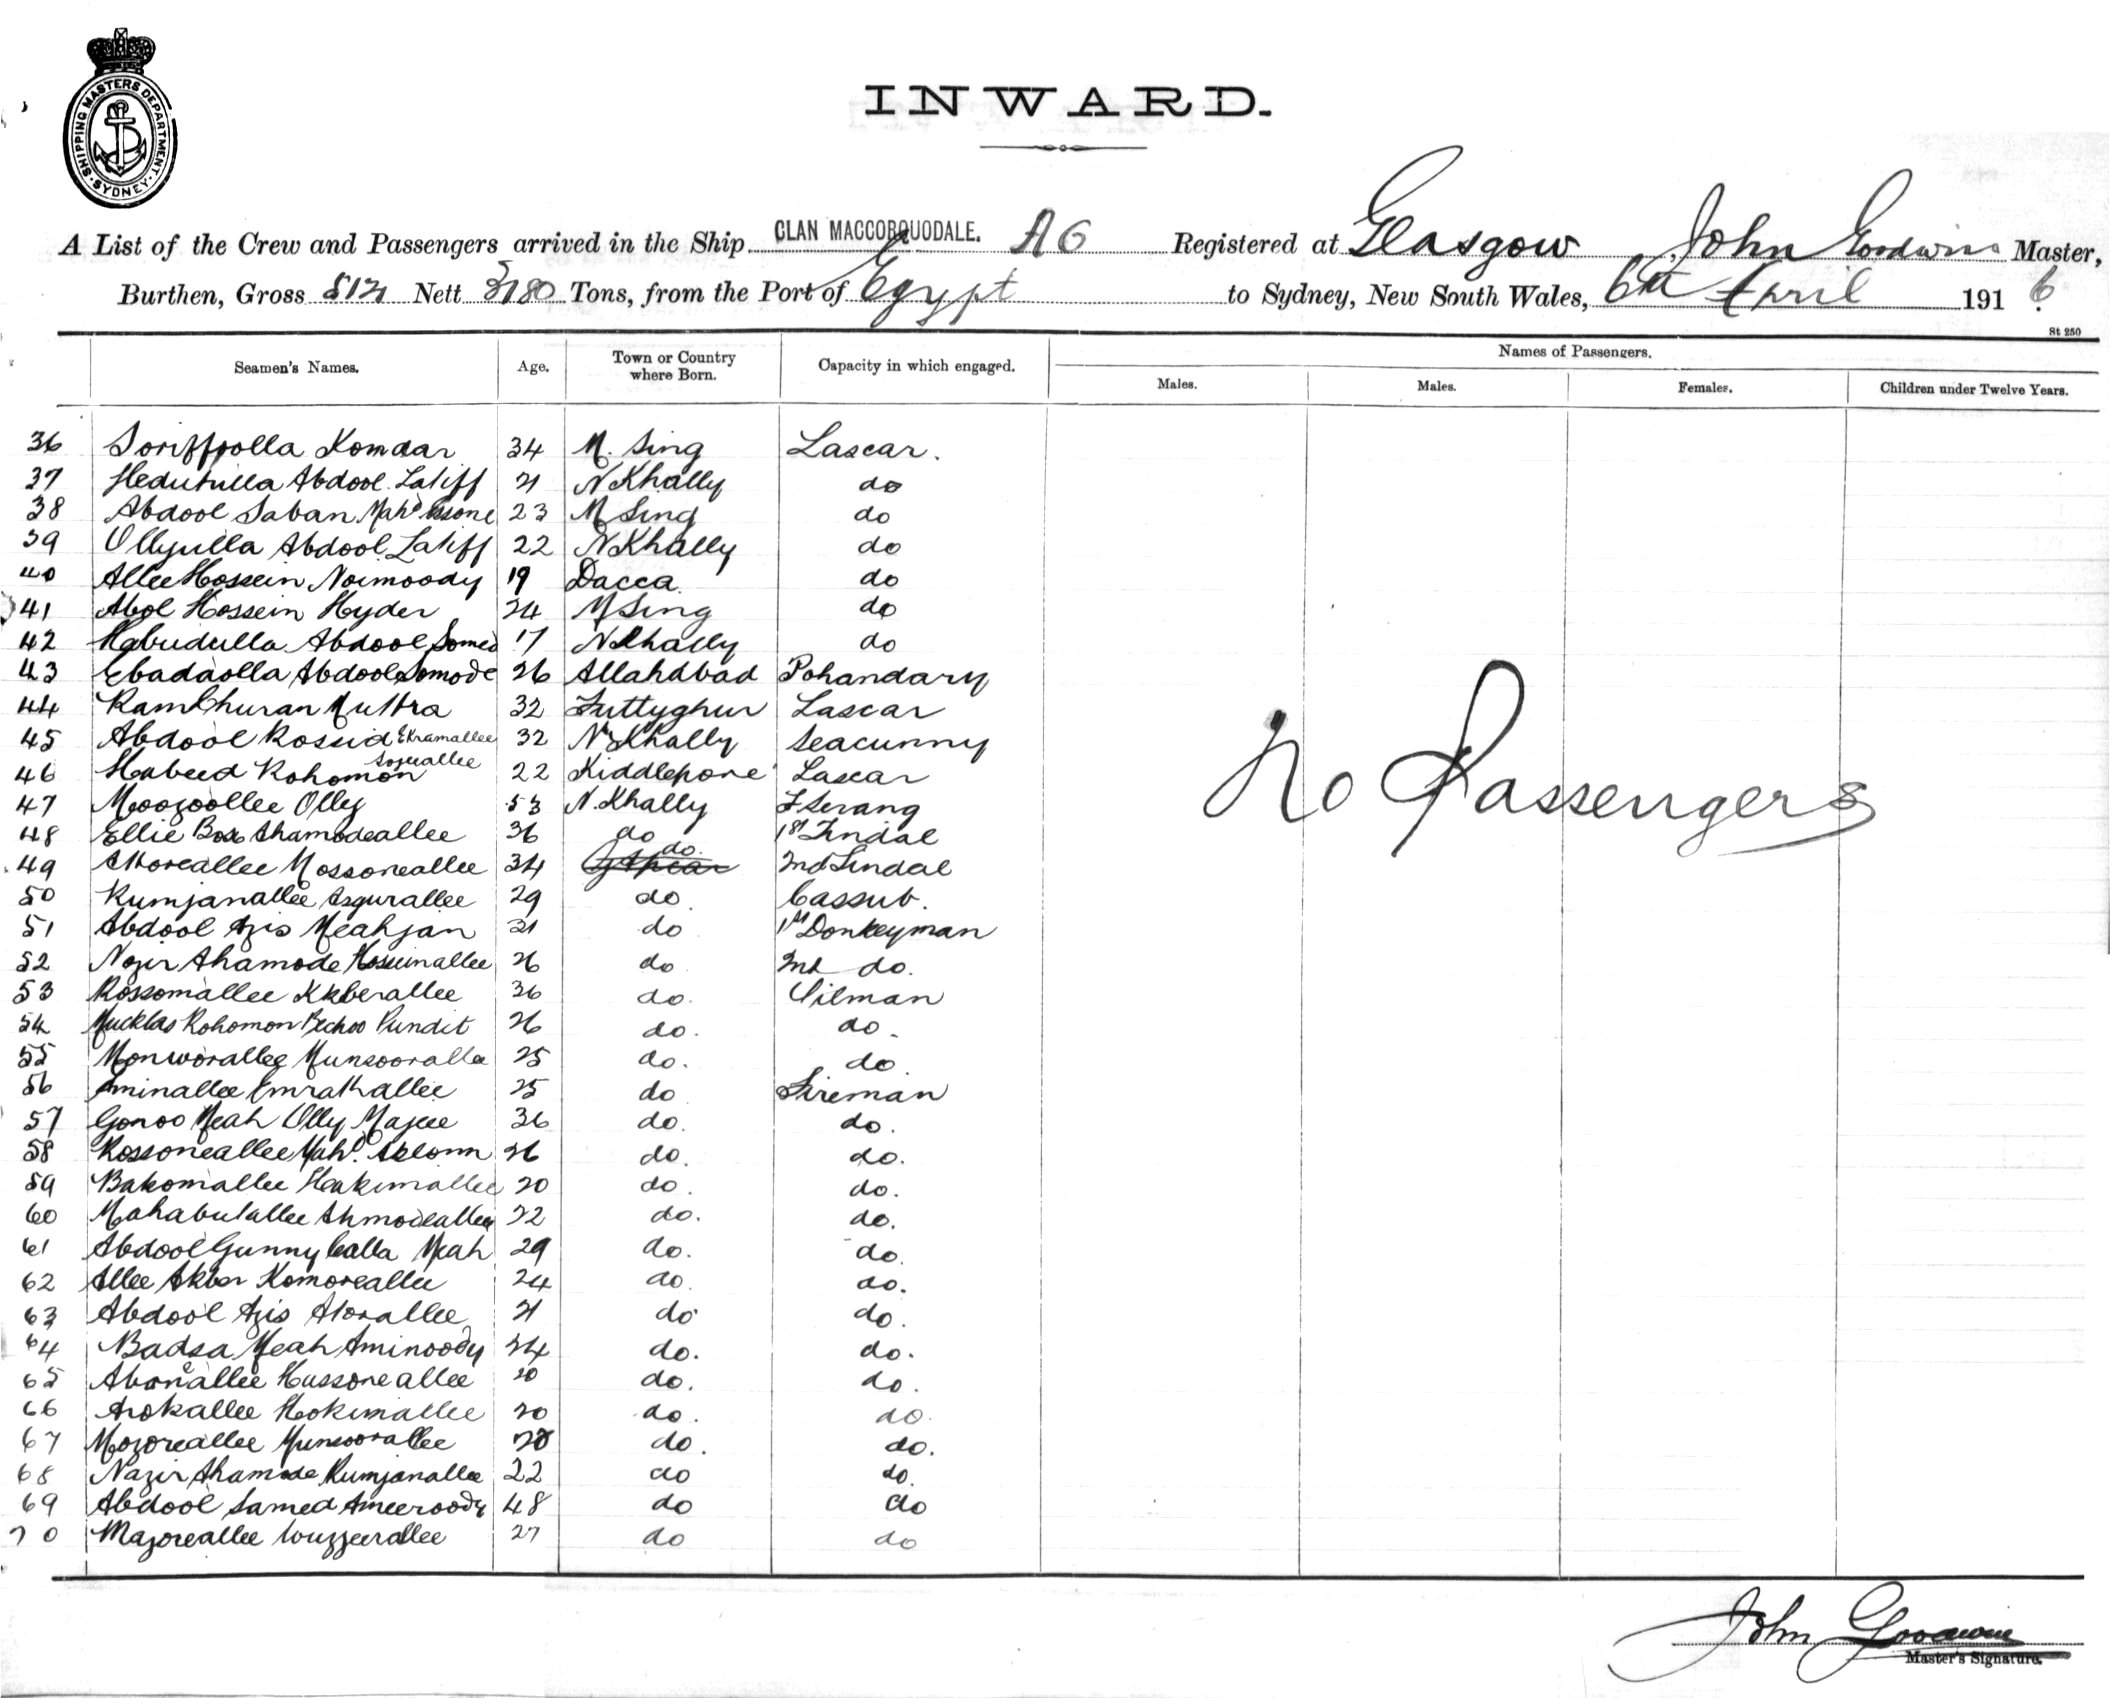 SHIPPING MASTERS DEPARTMENT. SYDNEY
INWARD.
A List of the Crew and Passengers arrived in the Ship CLAN MACCORQUODALE. AG Registered at Glasgow John Goodwin Master,
Burthen, Gross 5121 Nett 3180 Tons, from the Port of Egypt to Sydney, New South Wales, 6th April 1916
St 250
Seamen's Names. Age. Town or Country where Born. Capacity in which engaged. Names of Passengers.
Males. Males. Females. Children under Twelve Years.
36 Soriffoolla Komdar 34 M. Sing Lascar.
37 Abdool Latiff 21 N Khally do
38 Abdool Saban Mahd Essone 23 M Sing do
39 Ollyulla Abdool Latiff 22 N Khally do
40 Allee Hossein Noimoody 19 Dacca do
41 Abol Hossein Hyder 24 M Sing do
42 Habudulla Abdool Somed 17 N Khally do
43 Ebadaolla Abdool Somode 26 Allahdbad Pohandary
44 Ram Churan Muttra 32 Futtyghur Lascar
45 Abdool Rossid Ekramallee 32 N Khally Seacunny
46 Habeed Rohomon 22 Kiddlepore Lascar
47 Moozoollee Olly 53 N. Khally F Serang
48 Ellie Box Ahamodeallee 36 do 1st Tindal
49 Attoreallee Mossoneallee 34 do. 2nd Tindal
50 Rumjanallee Asgurallee 29 do. Cassub.
51 Abdool Azis Meahjan 31 do 1st Donkeyman
52 Nozir Ahamode Hosseinallee 26 do 2nd do.
53 Rossomallee Akberallee 36 do. Oilman
54 Mucklas Rohomon Bechoo Pundit 26 do. do.
55 Monworallee Munsoorallee 25 do. do.
56 Aminallee Emratkallee 25 do Fireman
57 Gonoo Meah Olly Majee 36 do. do.
58 Rossoneallee Mahd. Aslomn 26 do. do.
59 Bakomallee Hakimallee 20 do. do.
60 Mahabutallee Ahmodeallee 22 do. do.
61 Abdool Gunny Calla Meah 29 do. do.
62 Allee Akbor Komoreallee 24 do. do.
63 Abdool Azis Atorallee 21 do do.
64 Badsa Meah Aminoody 24 do. do.
65 Hussoneallee 20 do. do.
66 Arokallee Hokimallee 20 do. do.
67 Mozoreallee Munsoorallee 20 do. do.
68 Nazir Ahamode Rumjanallee 22 do do.
69 Abdool Samed Ameeroody 48 do do
70 Mazoreallee Wuzzeerallee 27 do do
No Passengers
John Goodwin
Master's Signature.